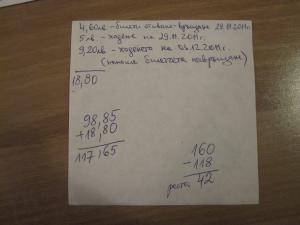 4,60лв - билети отиване-връщане 29.11.2011г.
5лв. - ходене на 29.11.2011г.
9,20лв - ходенето на 03.12.2011г.
(нямаше билетчета на връщане)
18,80
98,85
+18,80
117,65
160
-118
ресто 42